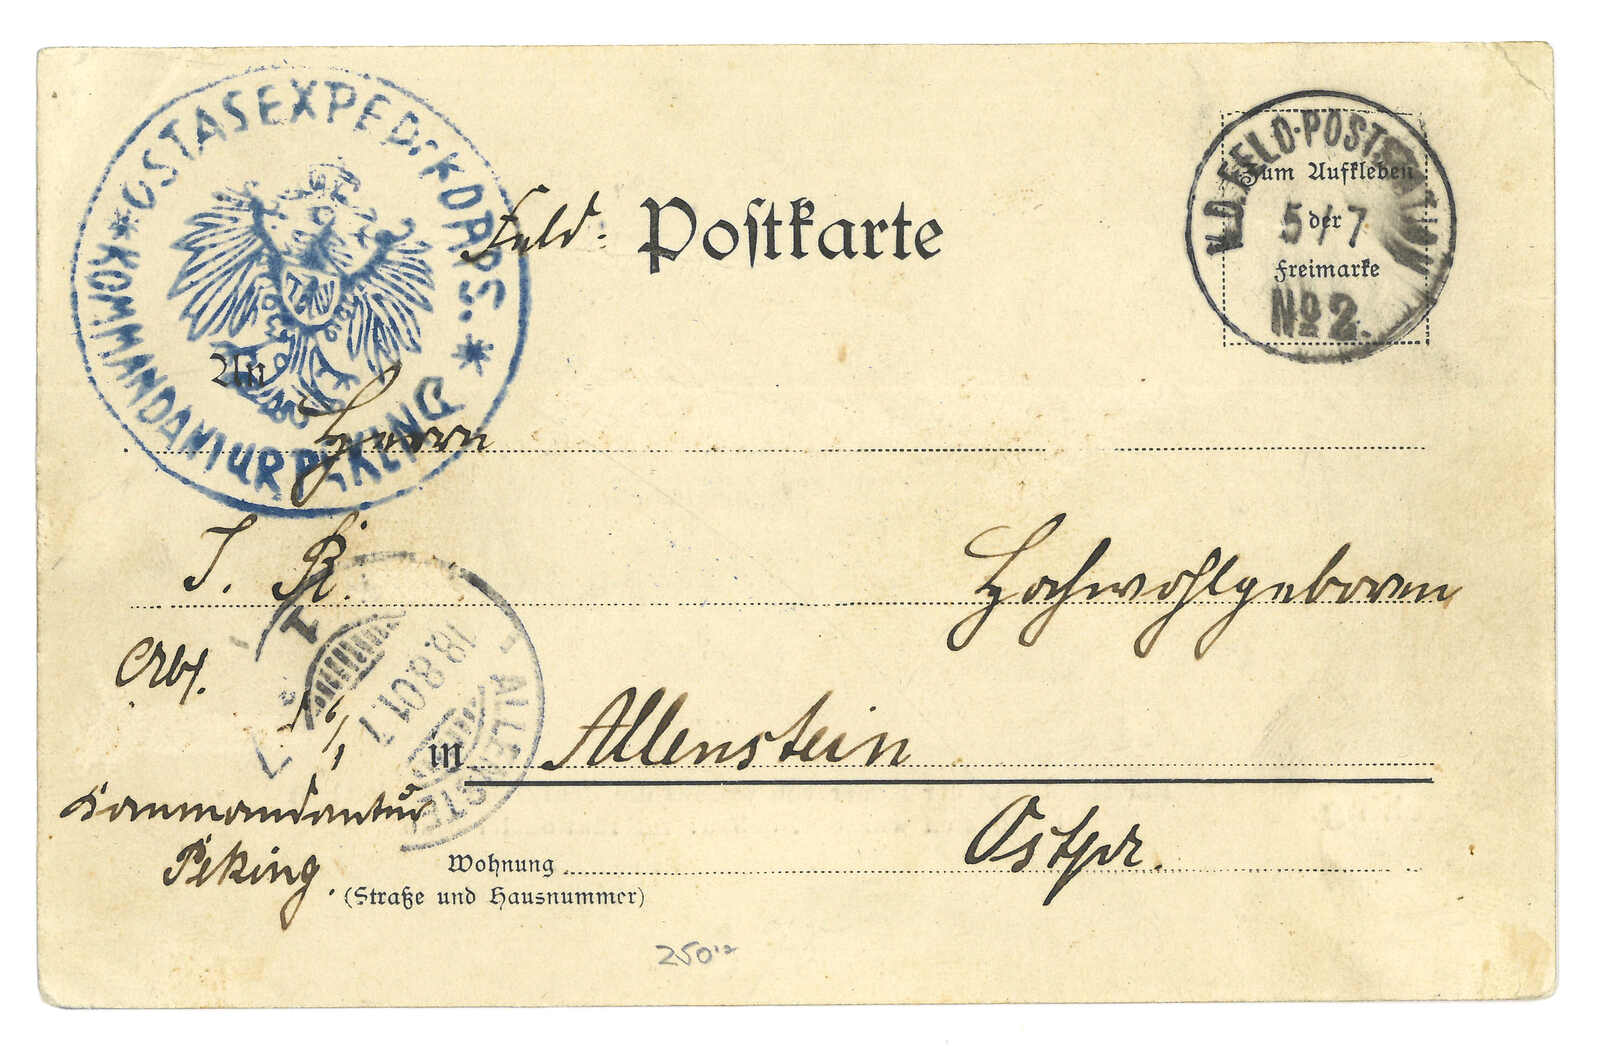 * OSTASEXPED: KORPS. *
KOMMANDANTUR PEKING
K.D. FELD-POSTSTATION
5/7
No 2.
Feld- Postkarte
Zum Aufkleben
der
Freimarke
An
Herrn
Hochwohlgeboren
1
ALLENSTE
18.8.01.7
Abs.
in Allenstein
Kommandantur
Peking.
Ostpr.
Wohnung
(Straße und Hausnummer)
250